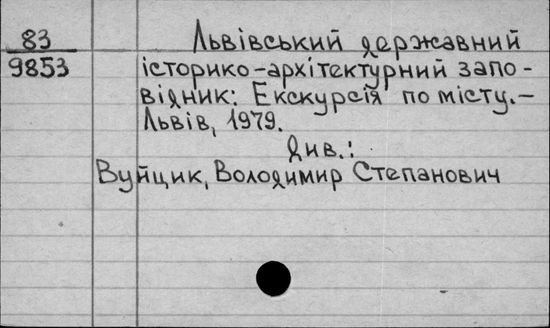 83
9853
Львівський державний
історико-архітектурний запо-
відник: Екскурсія по місту.–
Львів, 1979.
див.:
Вуйцик, Володимир Степанович